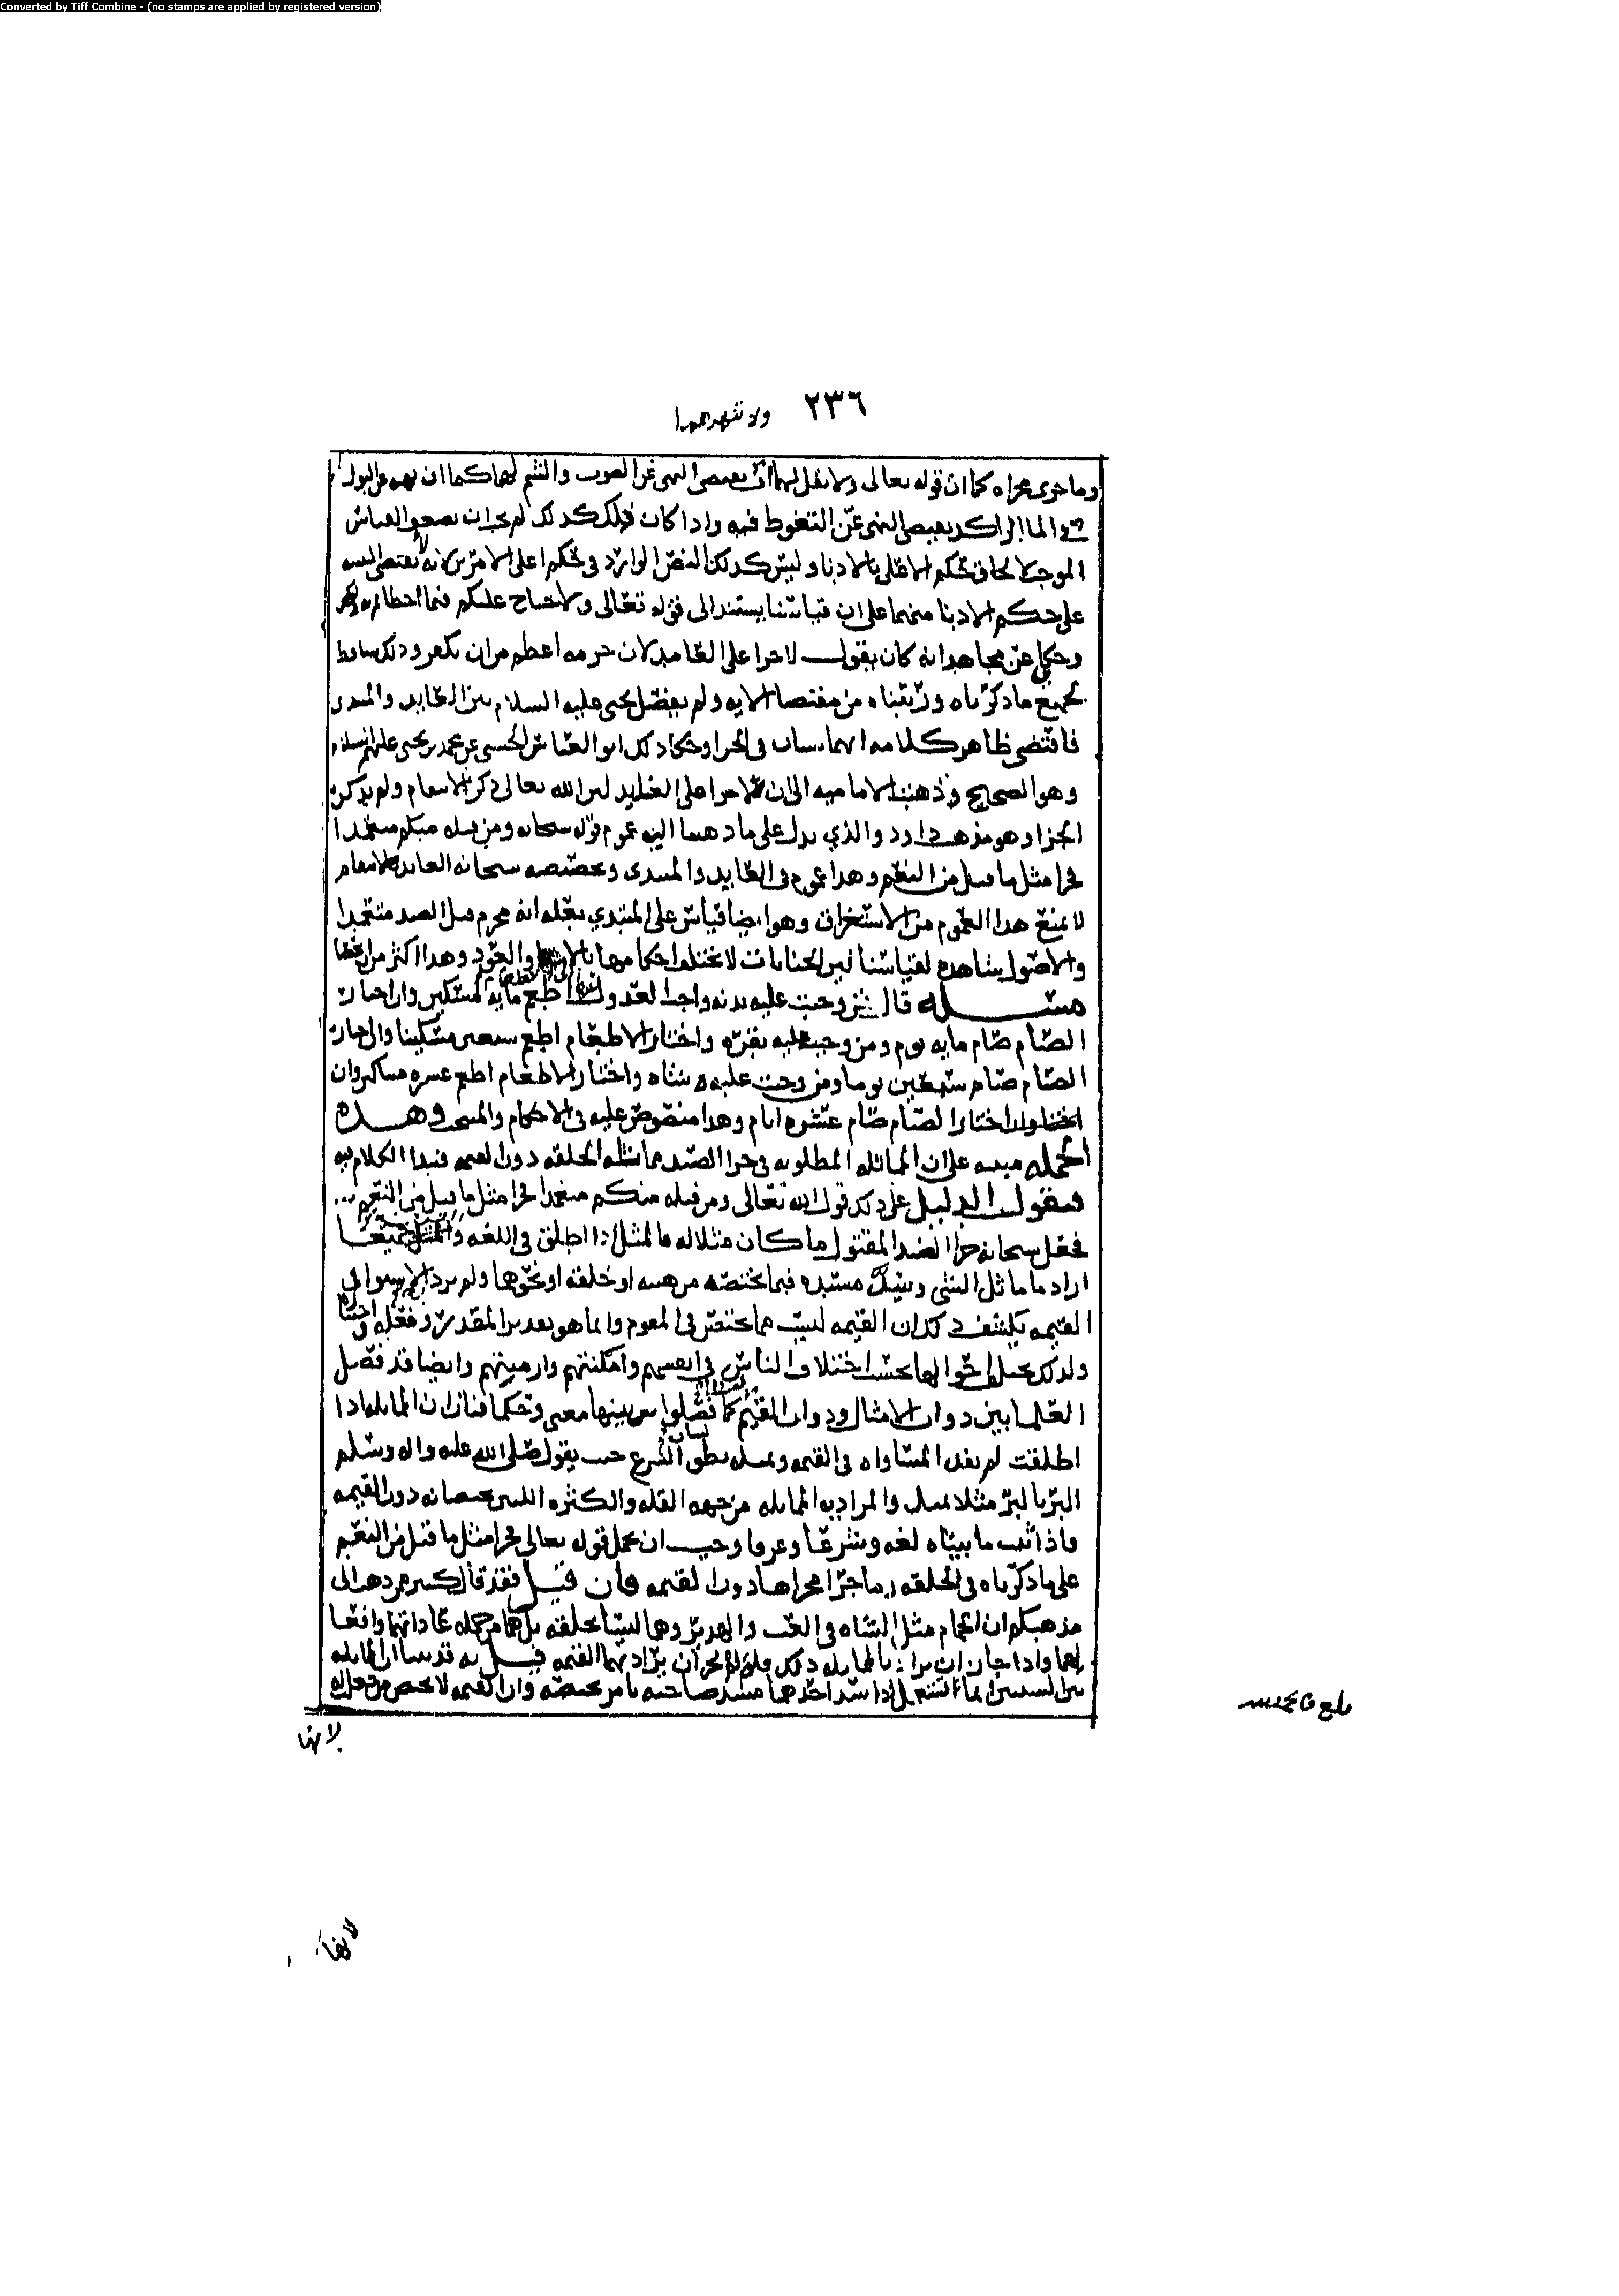 Converted by Tiff Combine - (no stamps are applied by registered version)
٢٣٦ ولا تنهرهما
وما جرى مجراه كما ان قوله تعالى ولا تقل لهما اف يقتضي النهي عن الضرب والشتم لهما كما ان نهيه عن البول
في الما الراكد يقتضي النهي عن التغوط فيه واذا كان ذلك كذلك لم يجز ان القياس
الموجب لالحاق حكم الاعلى بالادنا وليس كذلك النص الوارد في حكم اعلى الامرين لانه لا يقتضي التنبيه
على حكم الادنا منهما على ان قياسنا يستند الى قوله تعالى ولا جناح عليكم فيما اخطاتم به
وحكي عن مجاهد انه كان يقول لا جزا على العامد لان جرمه اعظم من ان يكفر وذلك ساقط
بجميع ما ذكرناه ورتبناه من مقتضا الايه ولم يفصل يحيى عليه السلام بين العايد والمبتدي
فاقتضى ظاهر كلامه انهما سيان في الجزا وحكا ذلك ابو العباس الحسني عن محمد بن يحيى عليهم السلام
وهو الصحيح وذهبت الاماميه الى ان لا جزا على العايد لان الله تعالى ذكر الانتقام ولم يذكر
الجزا وهو مذهب داود والذي يدل على ما ذهبنا اليه عموم قوله سبحانه ومن قتله منكم متعمدا
فجزا مثل ما قتل من النعم وهذا عموم في العايد والمبتدي وتخصيصه سبحانه العايد بالانتقام
لا يمنع هذا العموم من الاستغراق وهو ايضا قياس على المبتدي بعله انه محرم قتل الصيد متعمدا
والاصول شاهده لقياسنا لان الجنايات لا تختلف احكامها بالابتدا والعود وهذا اكثر من ان يحصا
مسئله قال ومن وجبت عليه بدنه واحب العدول الى الاطعام اطعم مايه مسكين وان اختار
الصيام صام مايه يوم ومن وجبت عليه بقره واختار الاطعام اطعم سبعين مسكينا وان اختار
الصيام صام سبعين يوما ومن وجبت عليه شاه واختار الاطعام اطعم عشره مساكين وان
اختار الصيام صام عشره ايام وهذا منصوص عليه في الاحكام والمنتخب وهذه
الجمله مبنيه على ان المماثله المطلوبه في جزا الصيد مماثله الخلقه دون القيمه فنبدا الكلام فيه
فنقول الدليل على ذلك قول الله تعالى ومن قتله منكم متعمدا فجزا مثل ما قتل من النعم
فجعل سبحانه جزا الصيد المقتول ما كان مثلا له والمثل اذا اطلق في اللغه
اراد ما ماثل الشي وسد مسده فيما يختصه من هيئه او خلقه او نحوهما ولم يرد
القيمه يكشف ذلك ان القيمه ليست مما يختص المقوم وانما هو تقدير المقدر وفعله
ولذلك تختلف احوالها بحسب اختلاف الناس في انفسهم وامكنتهم وازمنتهم وايضا قد فصل
العلما بين ذوات الامثال وذوات القيم كما فصلوا بينهما معنى وحكما فبان ان المماثله اذا
اطلقت لم يفد المساواه في القيمه وبمثله نطق لسان الشرع حيث يقول صلى الله عليه واله وسلم
البر بالبر مثلا بمثل والمراد به المماثله من جهه القله والكثره اللتين يختصانه دون القيمه
واذ ثبت ما بيناه لغه وشرعا وعرفا وجب ان يحمل قوله تعالى فجزا مثل ما قتل من النعم
على ما ذكرناه في الخلقه وما جرا مجراها دون القيمه فان قيل فقد قال كثير ممن ذهب الى
مذهبكم ان الحمام مثل الشاه في العب والهدير وهما ليستا بخلقه بل هما من جمله عاداتها وافعا
لهما واذا جاز ان يراد بالمماثله ذلك فلم لا يجوز ان يراد بهما القيمه قيل له قد بينا ان المماثله
بين الشيئين انما تستعمل اذا سد احدهما مسد صاحبه بامر يختصه وان القيمه لا تختص
لانها
بلغ قا بحمد الله
لانها